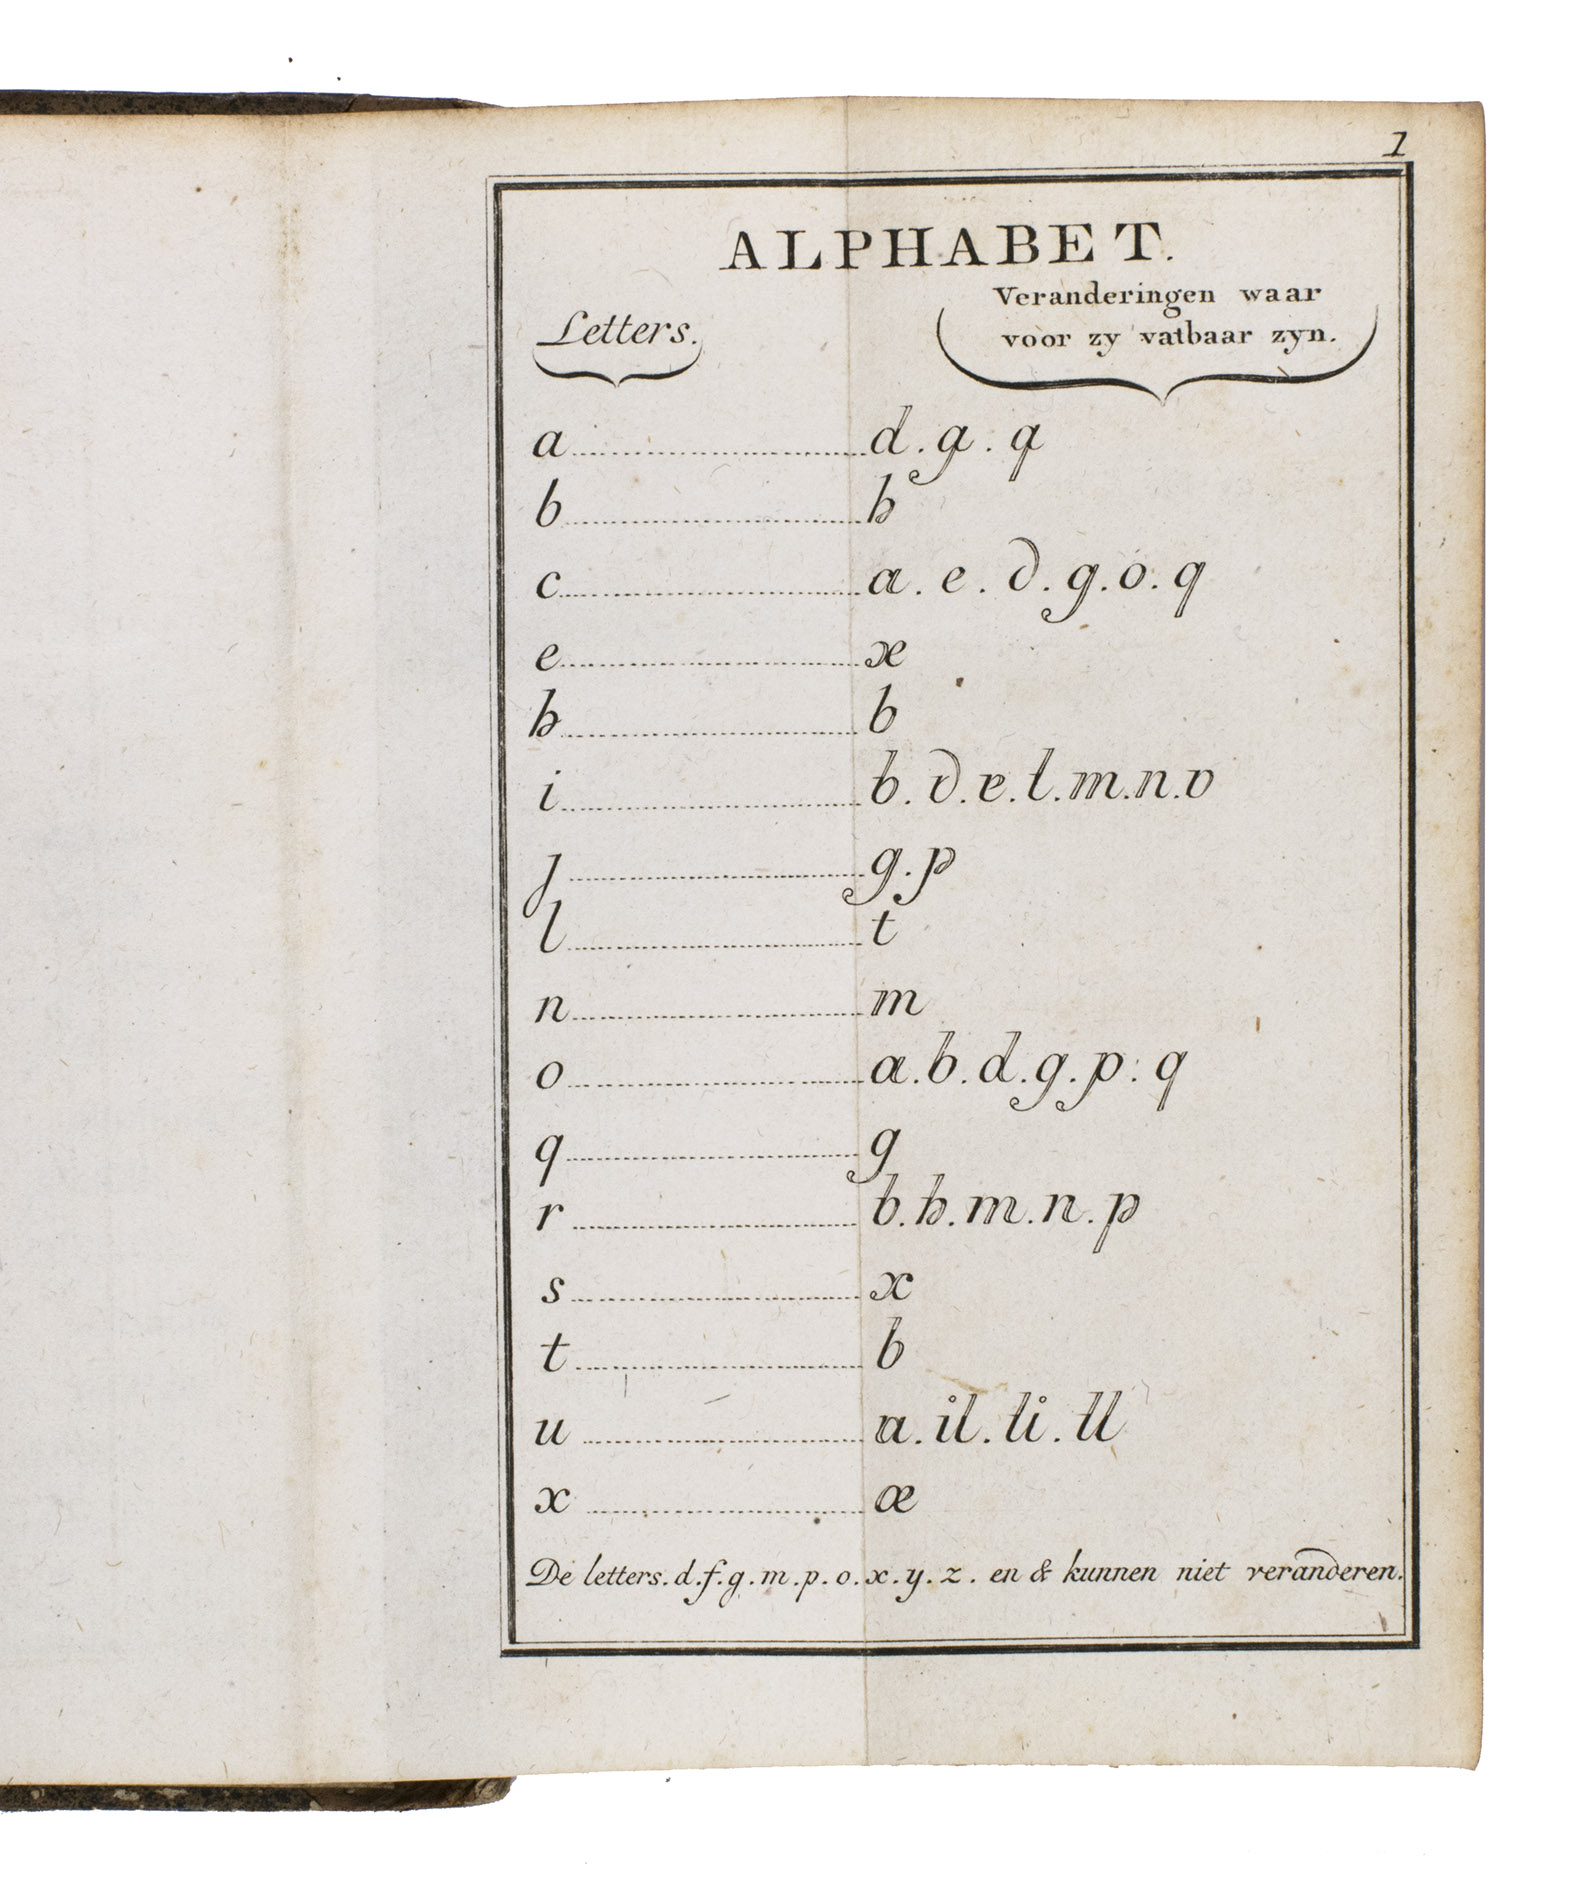 1
ALPHABET.
Letters.
Veranderingen waar
voor zy vatbaar zyn.
a........d.g.q
b........h
c........a.e.d.g.o.q
e........æ
h........b
i........b.d.e.l.m.n.v
j........g.p
l........t
n........m
o........a.b.d.g.p.q
q........g
r........b.h.m.n.p
s........x
t........b
u........a.il.li.ll
x........æ
De letters.d.f.g.m.p.o.x.y.z. en & kunnen niet veranderen.